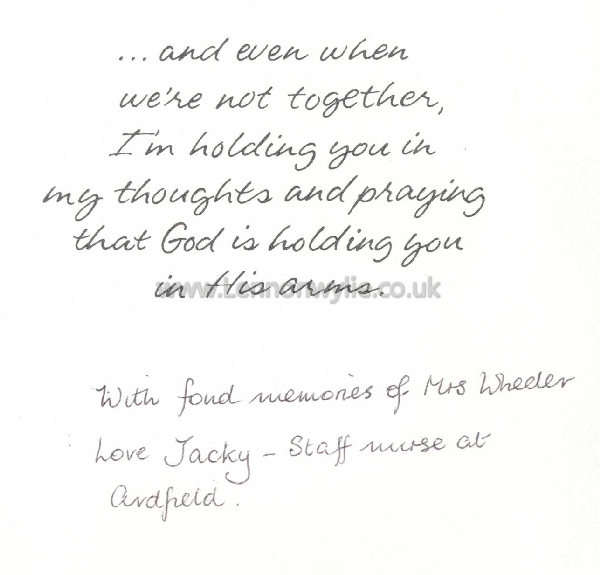 ... and even when
we're not together,
I'm holding you in
my thoughts and praying
that God is holding you
in His arms.
www.Lennonwylie.co.uk
With fond memories of Mrs Wheeler
Love Jacky - Staff nurse at
Ardfield.